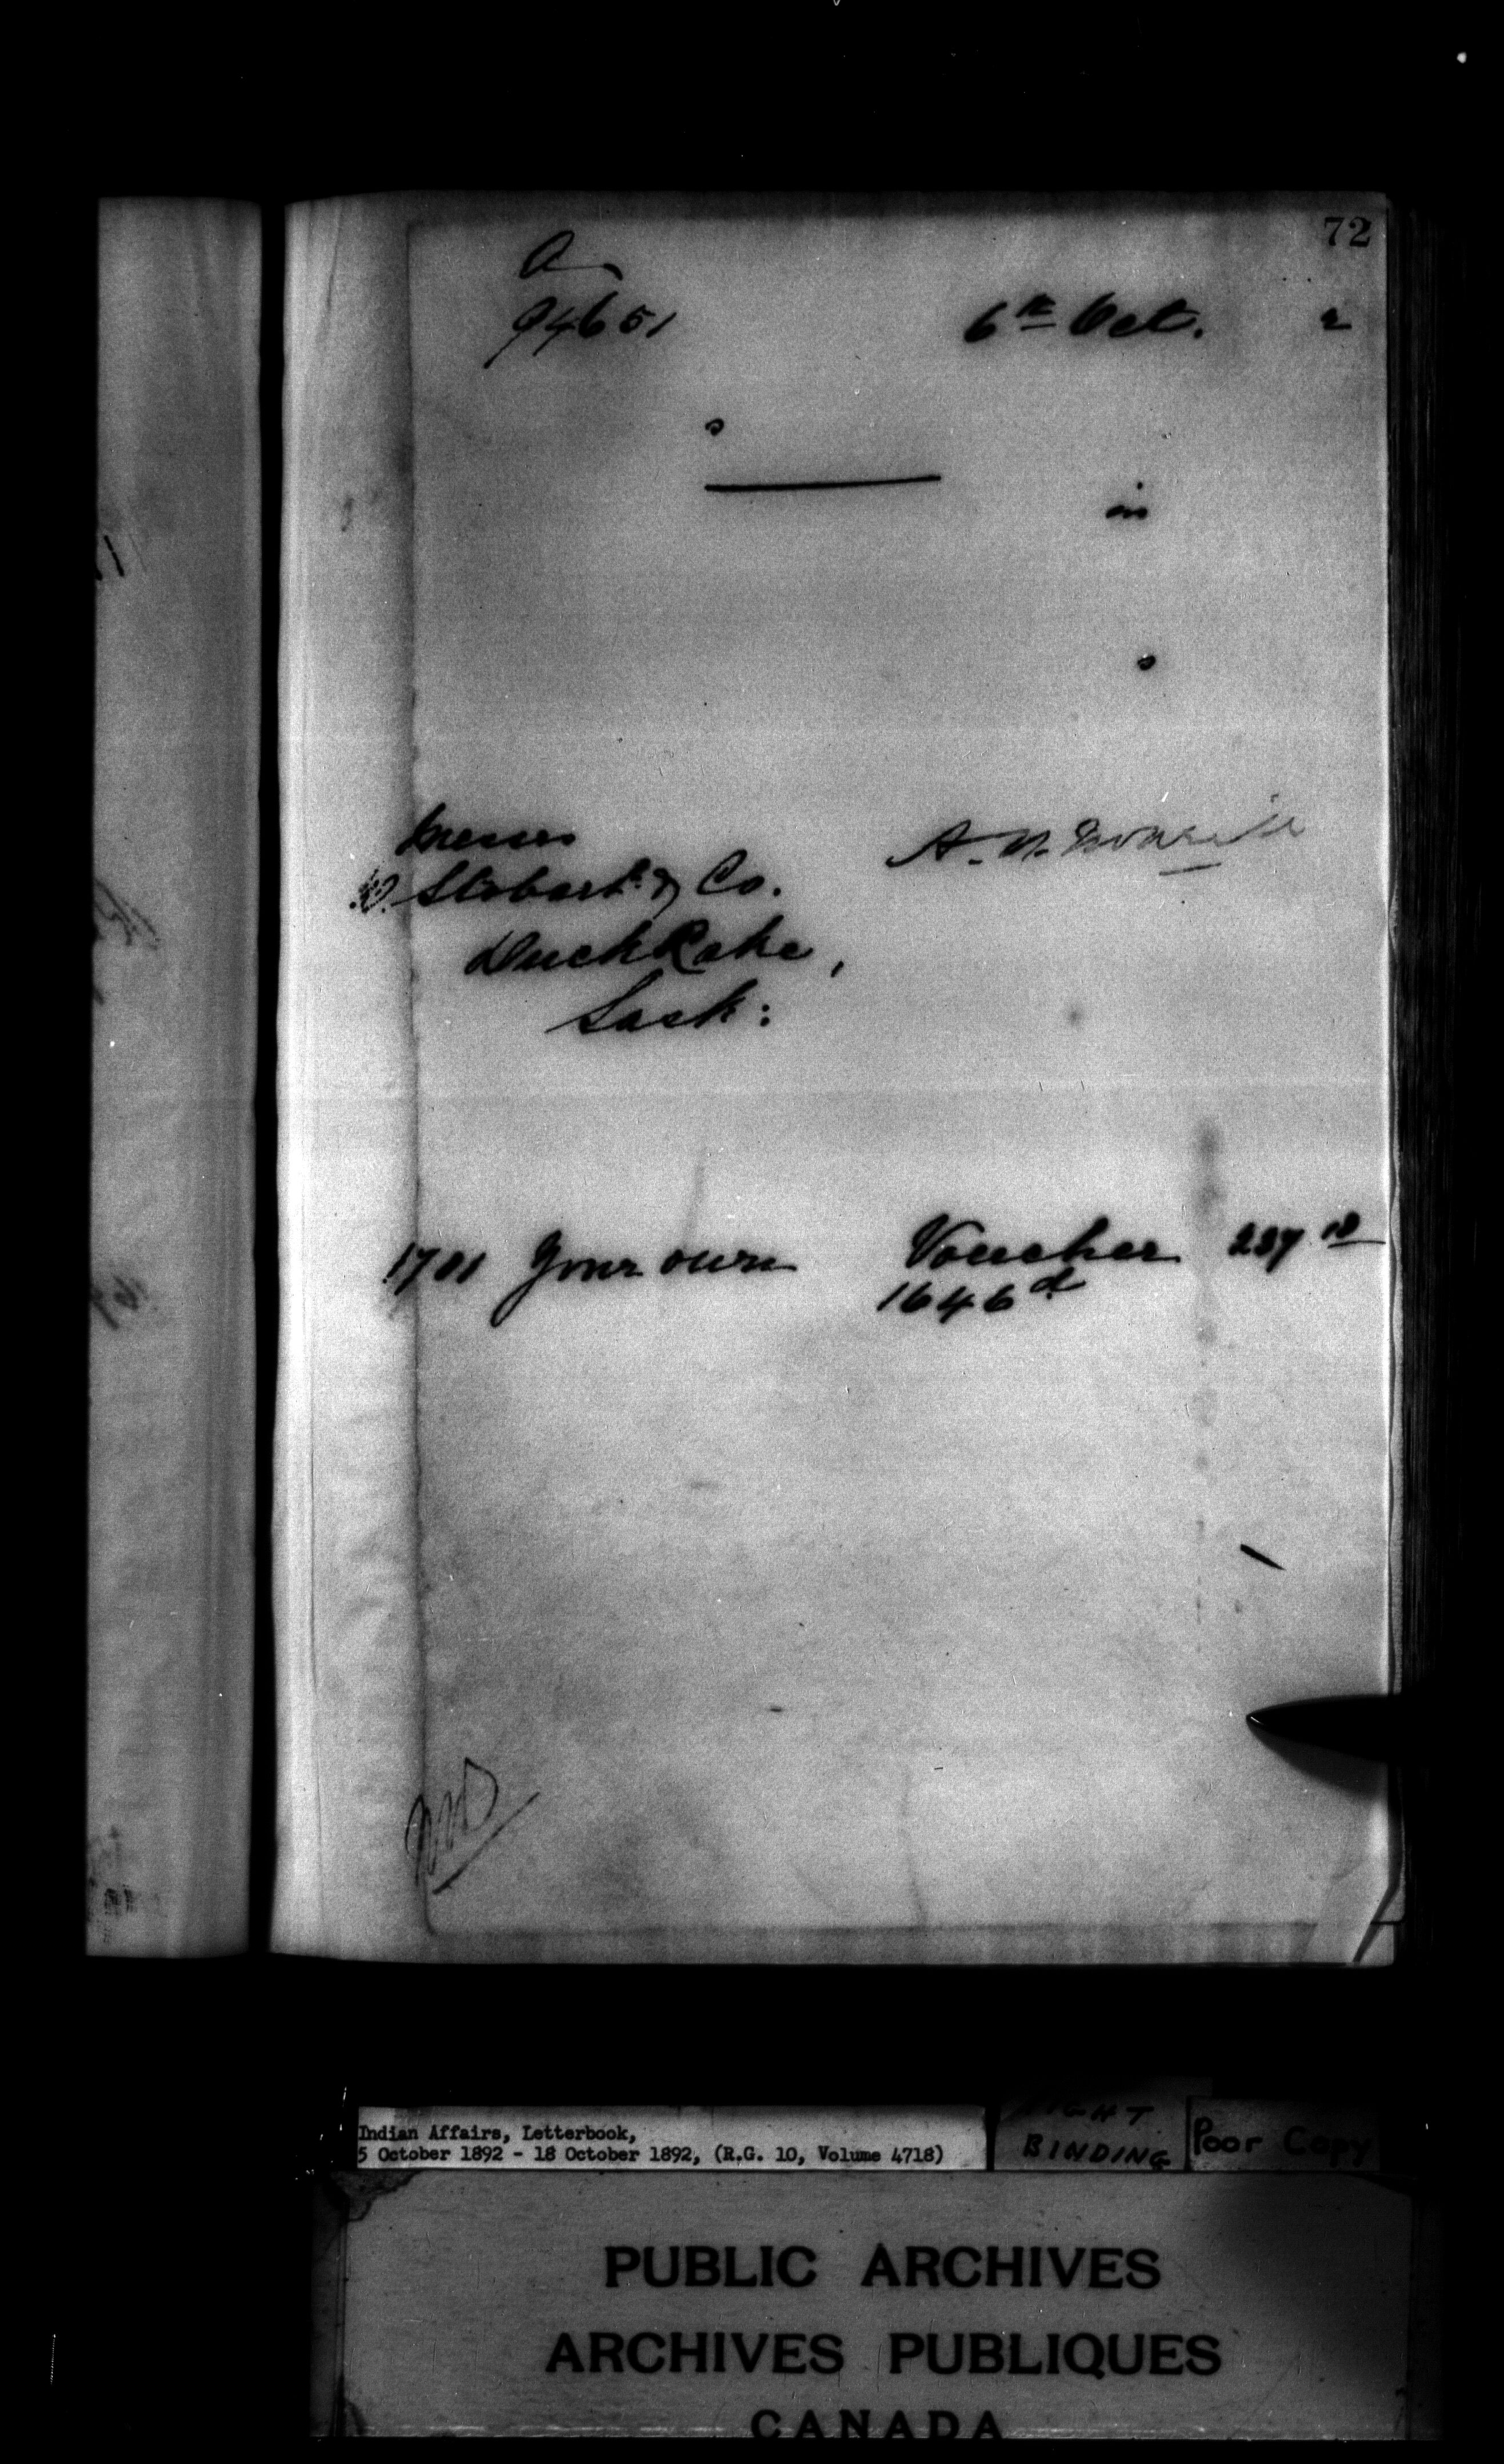 72
A
94651
6th Oct. 2
in
Messrs
Stobart & Co.
Duck Lake,
Sask:
1701 Your own Voucher 237 10
1646 d
Indian Affairs, Letterbook,
5 October 1892 - 18 October 1892, (R.G. 10, Volume 4718)
BINDING
Poor Copy
PUBLIC ARCHIVES
ARCHIVES PUBLIQUES
CANADA